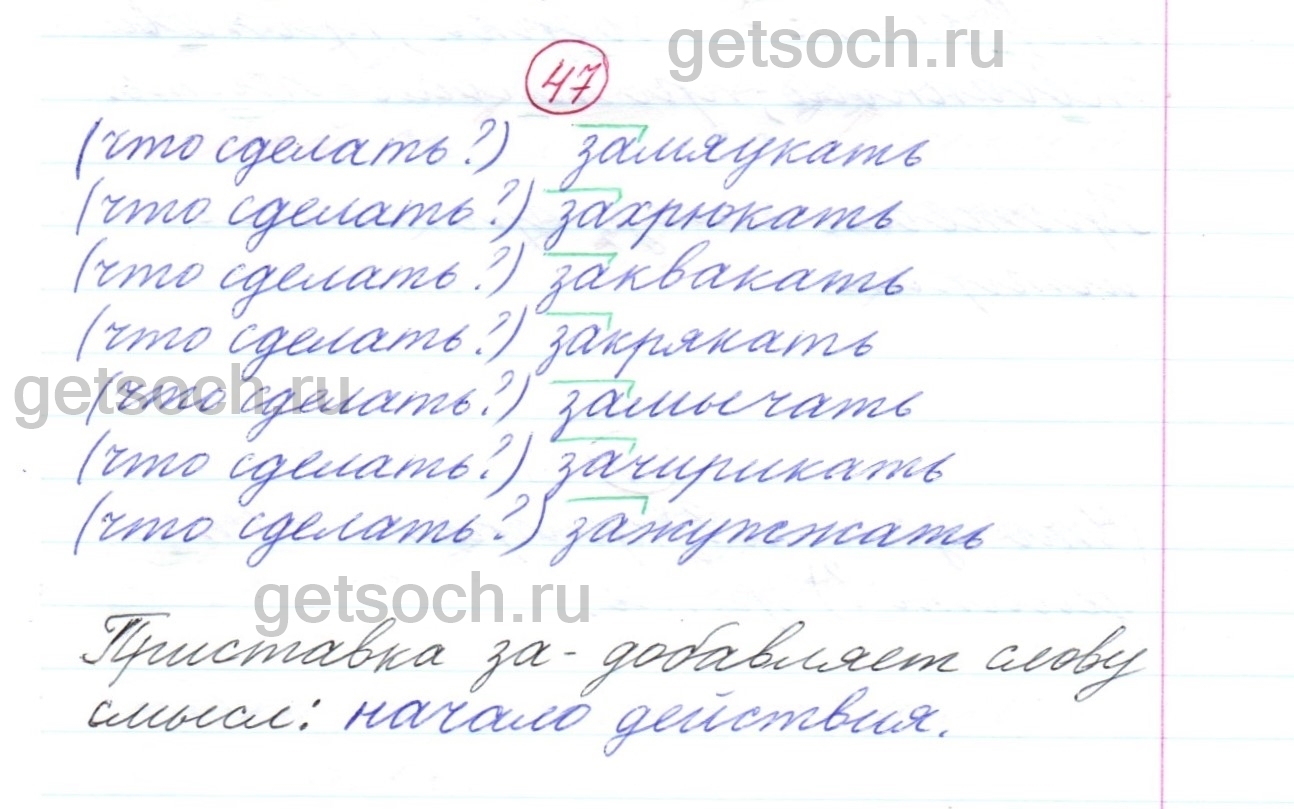 getsoch.ru
47
(что сделать?) замяукать
(что сделать?) захрюкать
(что сделать?) заквакать
(что сделать?) закрякать
getsoch.ru
(что сделать?) замычать
(что сделать?) зачирикать
(что сделать?) зажужжать
getsoch.ru
Приставка за- добавляет слову
смысл: начало действия.